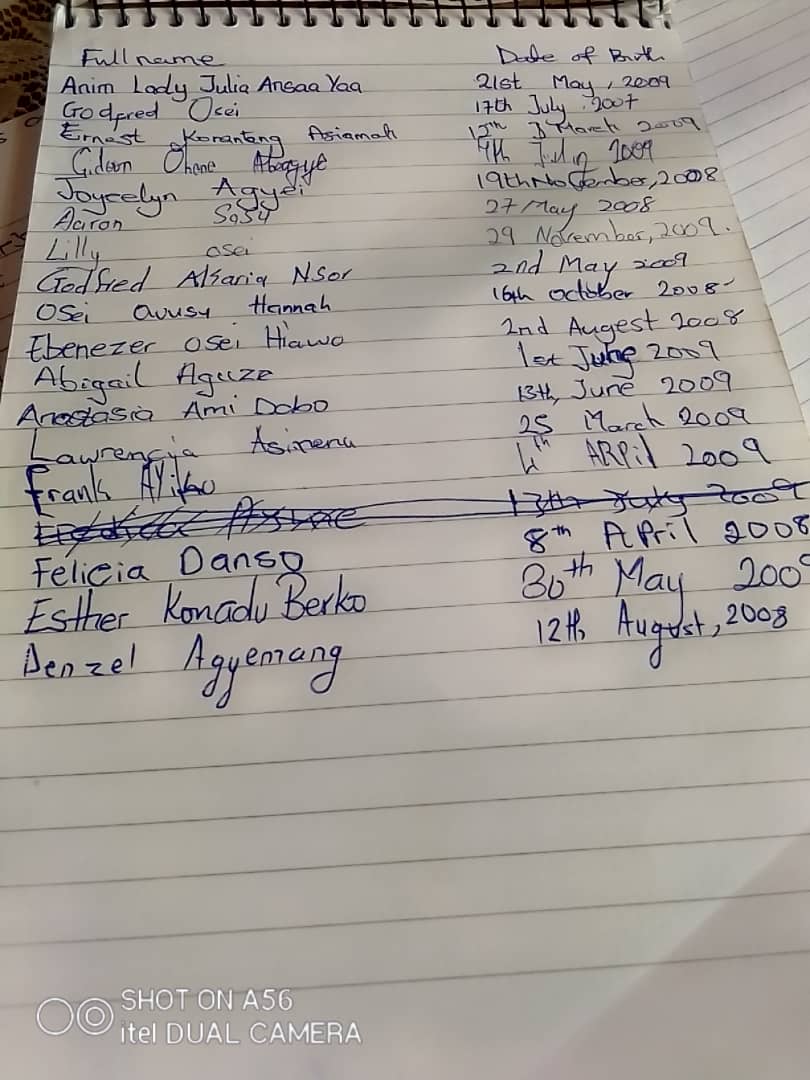 Full name Date of Birth
Anim Lady Julia Ansaa Yaa 21st May, 2009
Godfred Osei 17th July 2007
Ernest Koranteng Asiamah 15th March 2009
Gideon Ohene 4th July 2009
Joycelyn Agyei 19th November, 2008
Aaron Sasu 27 May 2008
Lilly osei 29 November, 2009.
Godfred Alsariq Nsor 2nd May 2009
Osei owusu Hannah 16th october 2008
Ebenezer osei Hiawo 2nd Augest 2008
Abigail Aguze 1st June 2009
Anastasia Ami Dobo 13th, June 2009
Lawrencia Asimenu 25 March 2009
Frank 4th ARPil 2009
13th July 2009
Felicia Danso 8th April 2008
Esther Konadu Berko 30th May 2009
Denzel Agyemang 12th August, 2008
SHOT ON A56
itel DUAL CAMERA